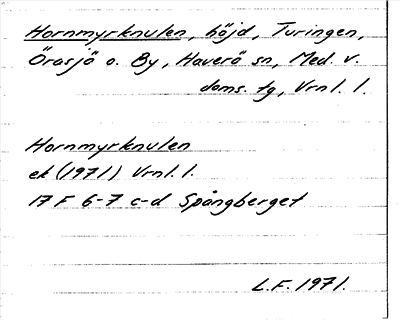 Hornmyrknulen, höjd, Turingen,
Örasjö o. By, Haverö sn, Med. v.
doms. tg, Vrnl. l.
Hornmyrknulen
ek (1971) Vrnl. l.
17 F 6-7 c-d Spångberget
L.F. 1971.